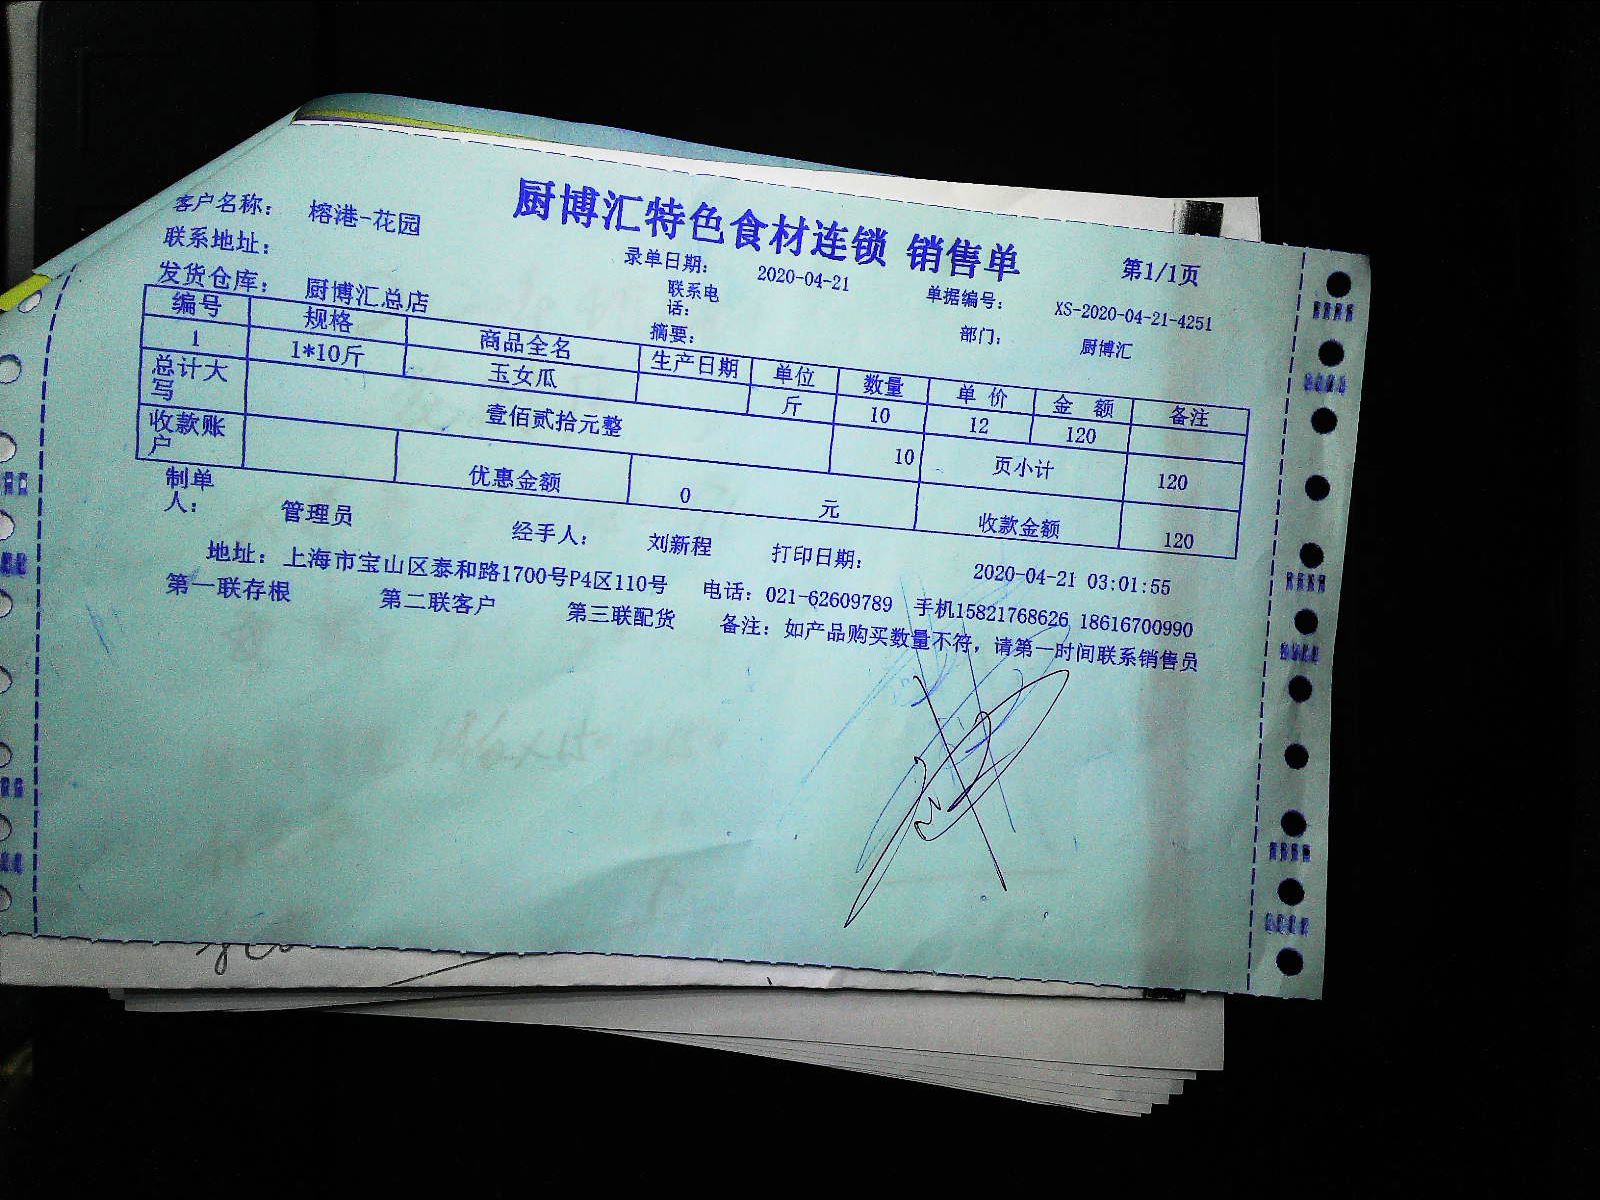 厨博汇特色食材连锁 销售单
客户名称： 榕港-花园 录单日期： 2020-04-21 第1/1页
联系地址： 联系电话： 单据编号： XS-2020-04-21-4251
发货仓库： 厨博汇总店 摘要： 部门： 厨博汇
编号 规格 商品全名 生产日期 单位 数量 单 价 金 额 备注
1 1*10斤 玉女瓜 斤 10 12 120
总计大写 壹佰贰拾元整 10 页小计 120
收款账户 优惠金额 0 元 收款金额 120
制单人： 管理员 经手人： 刘新程 打印日期： 2020-04-21 03:01:55
地址：上海市宝山区泰和路1700号P4区110号 电话：021-62609789 手机15821768626 18616700990
第一联存根 第二联客户 第三联配货 备注：如产品购买数量不符，请第一时间联系销售员